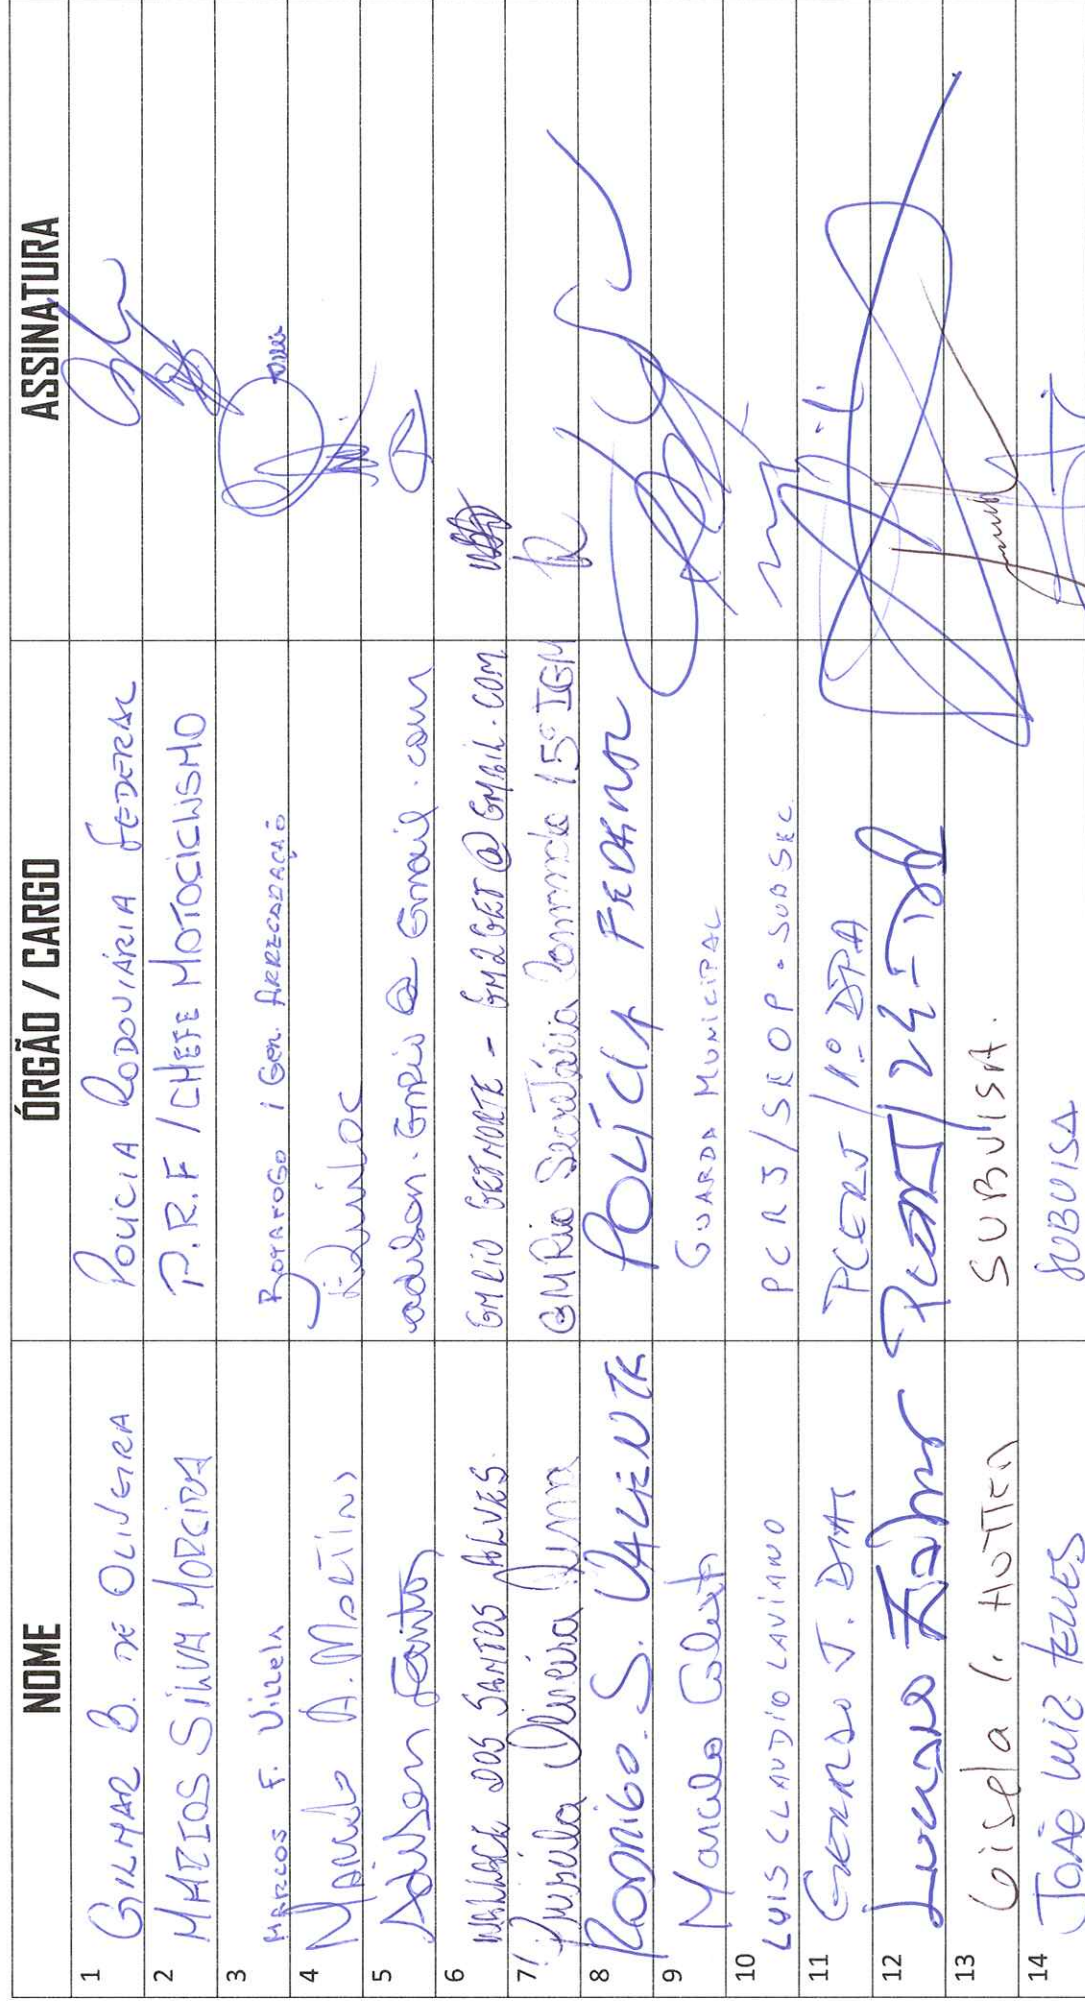 NOME ÓRGÃO / CARGO ASSINATURA
1 GILMAR B. DE OLIVEIRA POLICIA RODOVIÁRIA FEDERAL
2 MARIOS SILVA MOREIRA P.R.F / CHEFE MOTOCICLISMO
3 MARCOS F. Vilela BOTAFOGO / Ger. ARRECADAÇÃO
4 MARCELO A. MARTINS
5 Adilson Santos adilson.gmrio@gmail.com
6 WALLACE DOS SANTOS ALVES. GM RIO GETNORTE - GM2GET@GMAIL.COM
7 Oliveira GM Rio Secretária Comando 15ª IGM
8 RODRIGO. S. VALENTE POLÍCIA FEDERAL
9 Marcelo GUARDA MUNICIPAL
10 LUIS CLAUDIO LAVIANO PCRJ/SEOP - SUBSEC
11 GERALDO J. PCERJ / 1º DPA
12 LUCIANO PCERJ / 24ª DP
13 Gisela SUBVISA.
14 JOÃO LUIZ TELLES SUBVISA